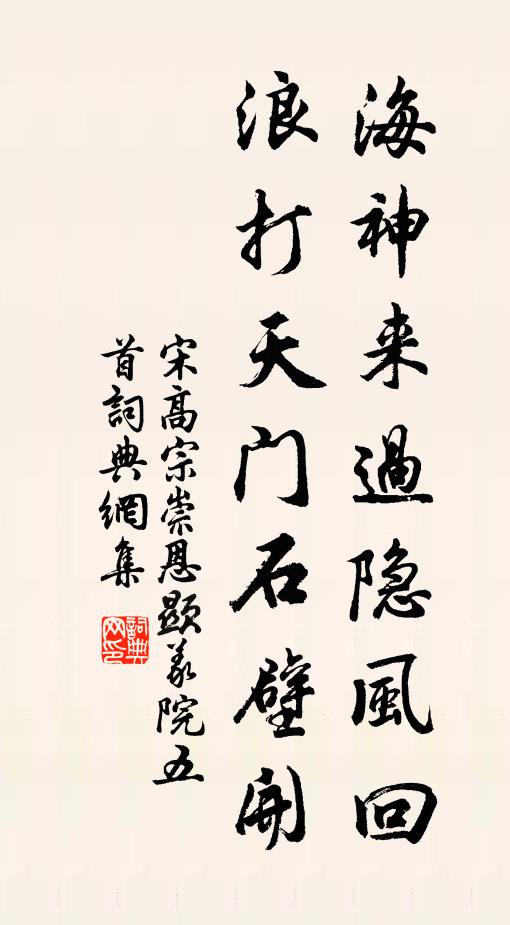 海神来過隐風回
浪打天门石壁開
宋高宗崇恩顯義院五
首詞典網集
詞典
网印